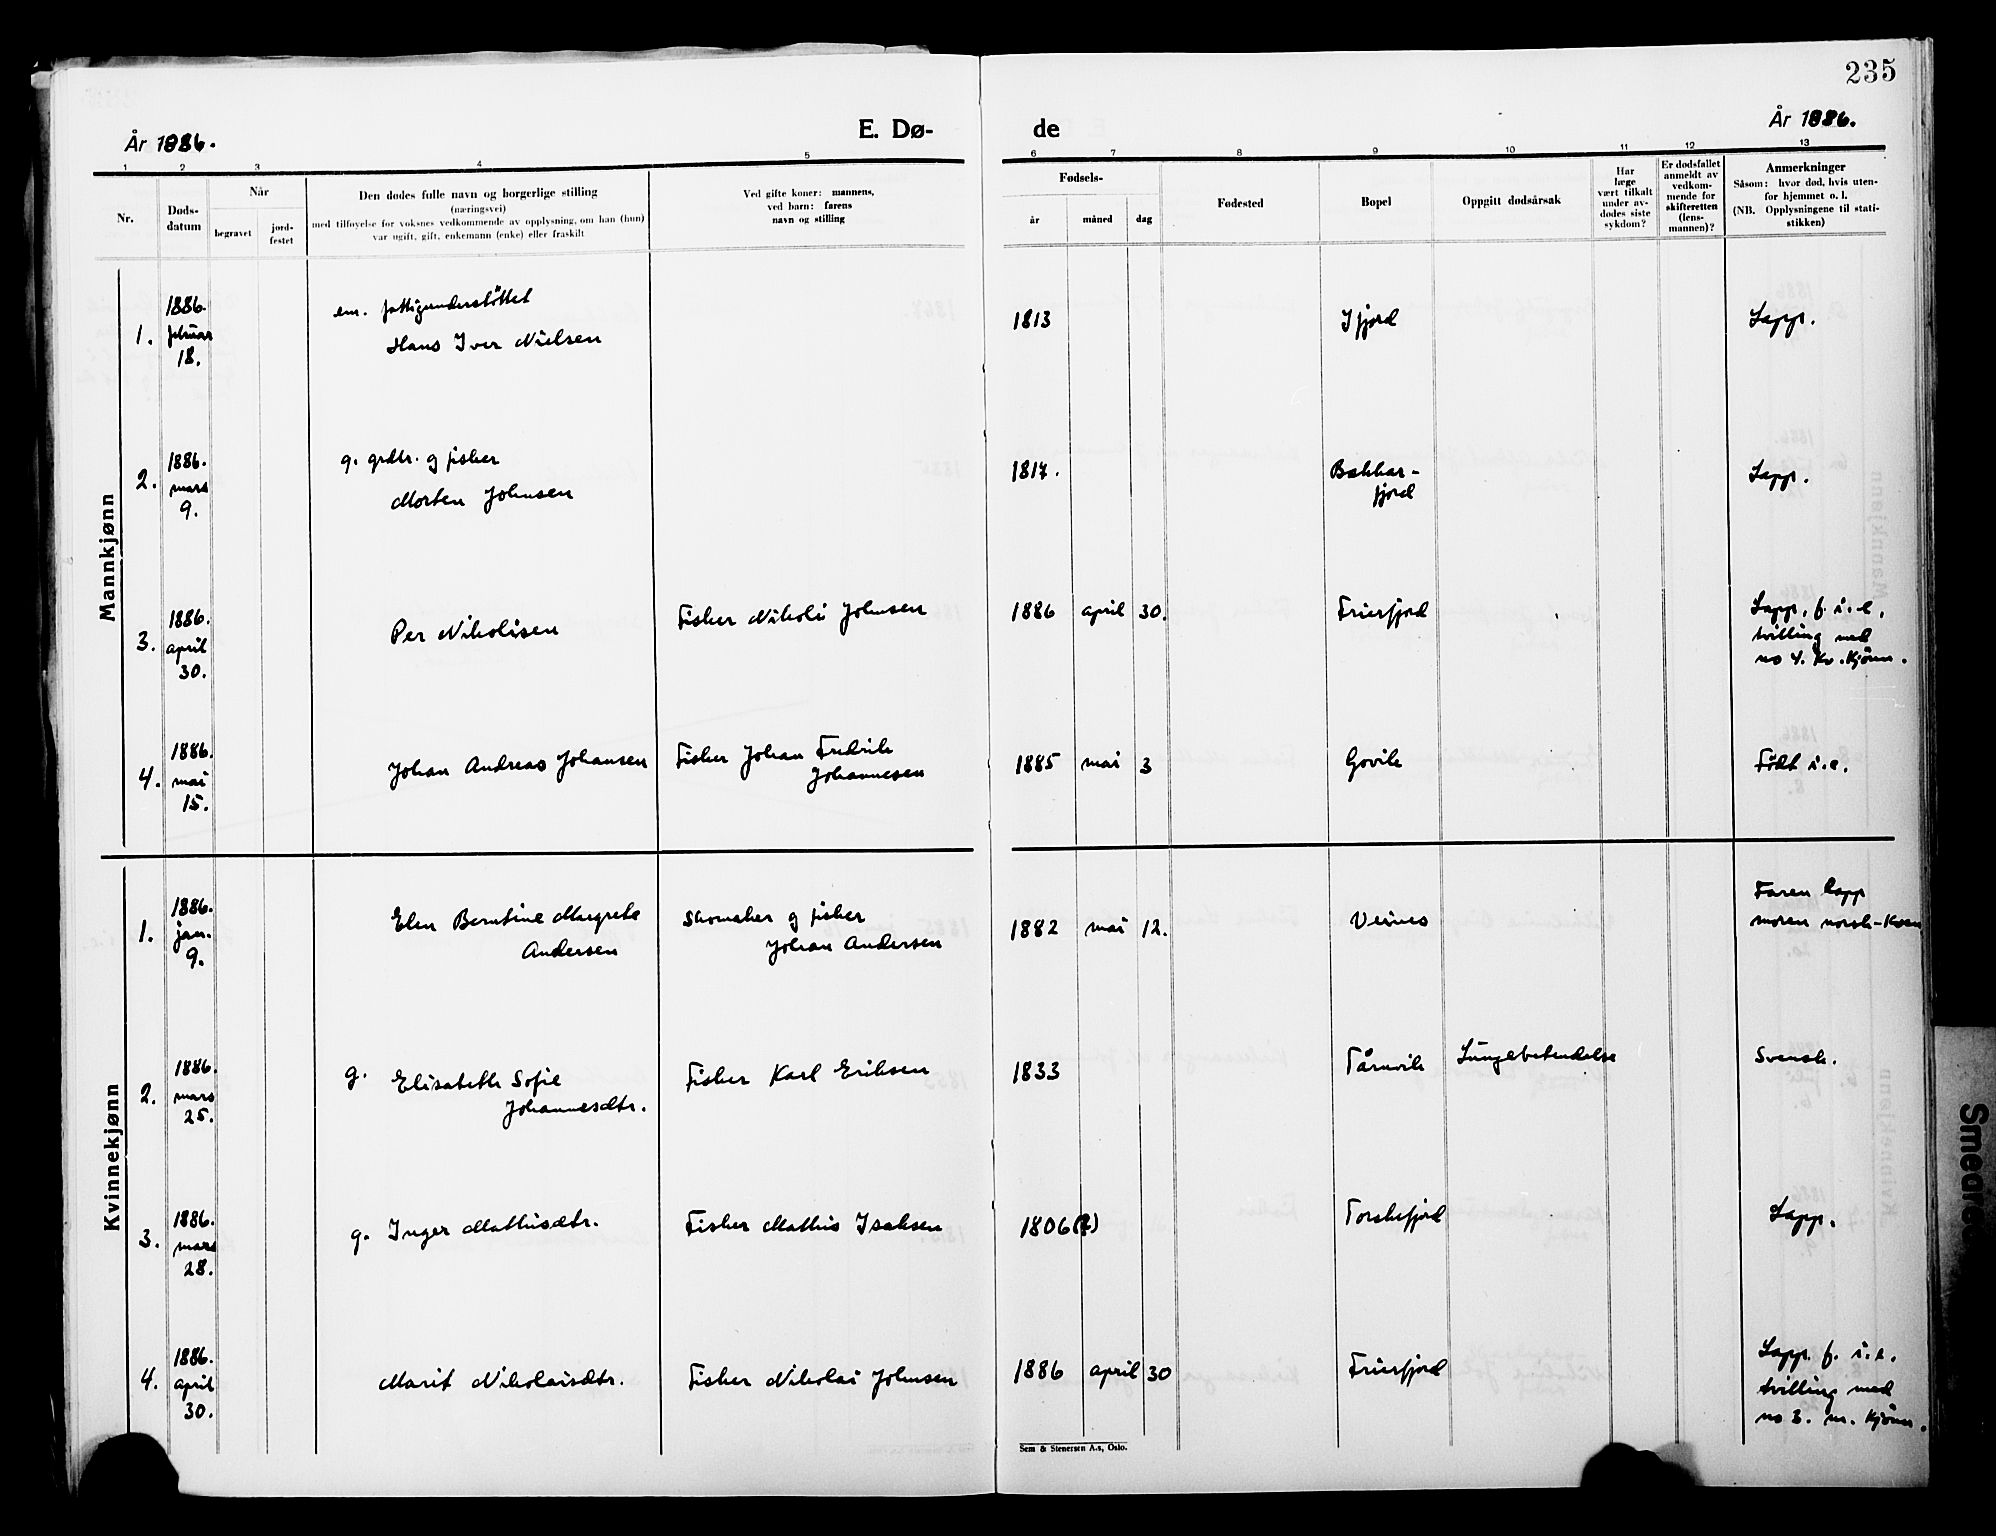 235
År 1886.
E. Dø-
de
År 1886.
1 2 3 4 5 6 7 8 9 10 11 12 13
Nr.
Døds-
datum
Når
begravet
jord-
festet
Den dødes fulle navn og borgerlige stilling
(næringsvei)
med tilføyelse for voksnes vedkommende av opplysning, om han (hun)
var ugift, gift, enkemann (enke) eller fraskilt
Ved gifte koner: mannens,
ved barn: farens
navn og stilling
Fødsels-
år
måned
dag
Fødested
Bopel
Oppgitt dødsårsak
Har
læge
vært tilkalt
under av-
dødes siste
sykdom?
Er dødsfallet
anmeldt av
vedkom-
mende for
skifteretten
(lens-
mannen)?
Anmerkninger
Såsom: hvor død, hvis uten-
for hjemmet o. l.
(NB. Opplysningene til stati-
stikken)
Mannkjønn
1.
1886.
februar
18.
em. fattigunderstöttet
Hans Iver Nielsen
1813
Ifjord
Lapp.
2.
1886.
mars
9.
g. grdbr. og fisker
Morten Johnsen
1817.
Bekkar-
fjord
Lapp.
3.
1886.
april
30.
Per Nikolisen
Fisker Nikoli Johnsen
1886 april 30.
Friarfjord
Lapp. f. i. e.
tvilling med
no 4. Kv. Kjönn.
4.
1886.
mai
15.
Johan Andreas Johansen
Fisker Johan Fredrik
Johannesen
1885 mai 3
Govik
Født i.e.
Kvinnekjønn
1.
1886.
jan.
9.
Elen Berntine Margrete
Andersen
Skomaker og fisker
Johan Andersen
1882 mai 12.
Veines
Faren lapp
moren norsk-Kven
2.
1886.
mars
25.
g. Elisabeth Sofie
Johannesdtr.
Fisker Karl Eriksen
1833
Tårnvik
Lungebetendelse
Svensk.
3.
1886.
mars
28.
g. Inger Mathisdtr.
Fisker Mathis Isaksen
1806(?)
Torskefjord
Lapp.
4.
1886.
april
30.
Marit Nikolaisdtr.
Fisker Nikolai Johnsen
1886 april 30
Friarfjord
Lapp. f. i. e.
tvilling med
no 3. m. kjönn.
Sem & Stenersen A.s, Oslo.